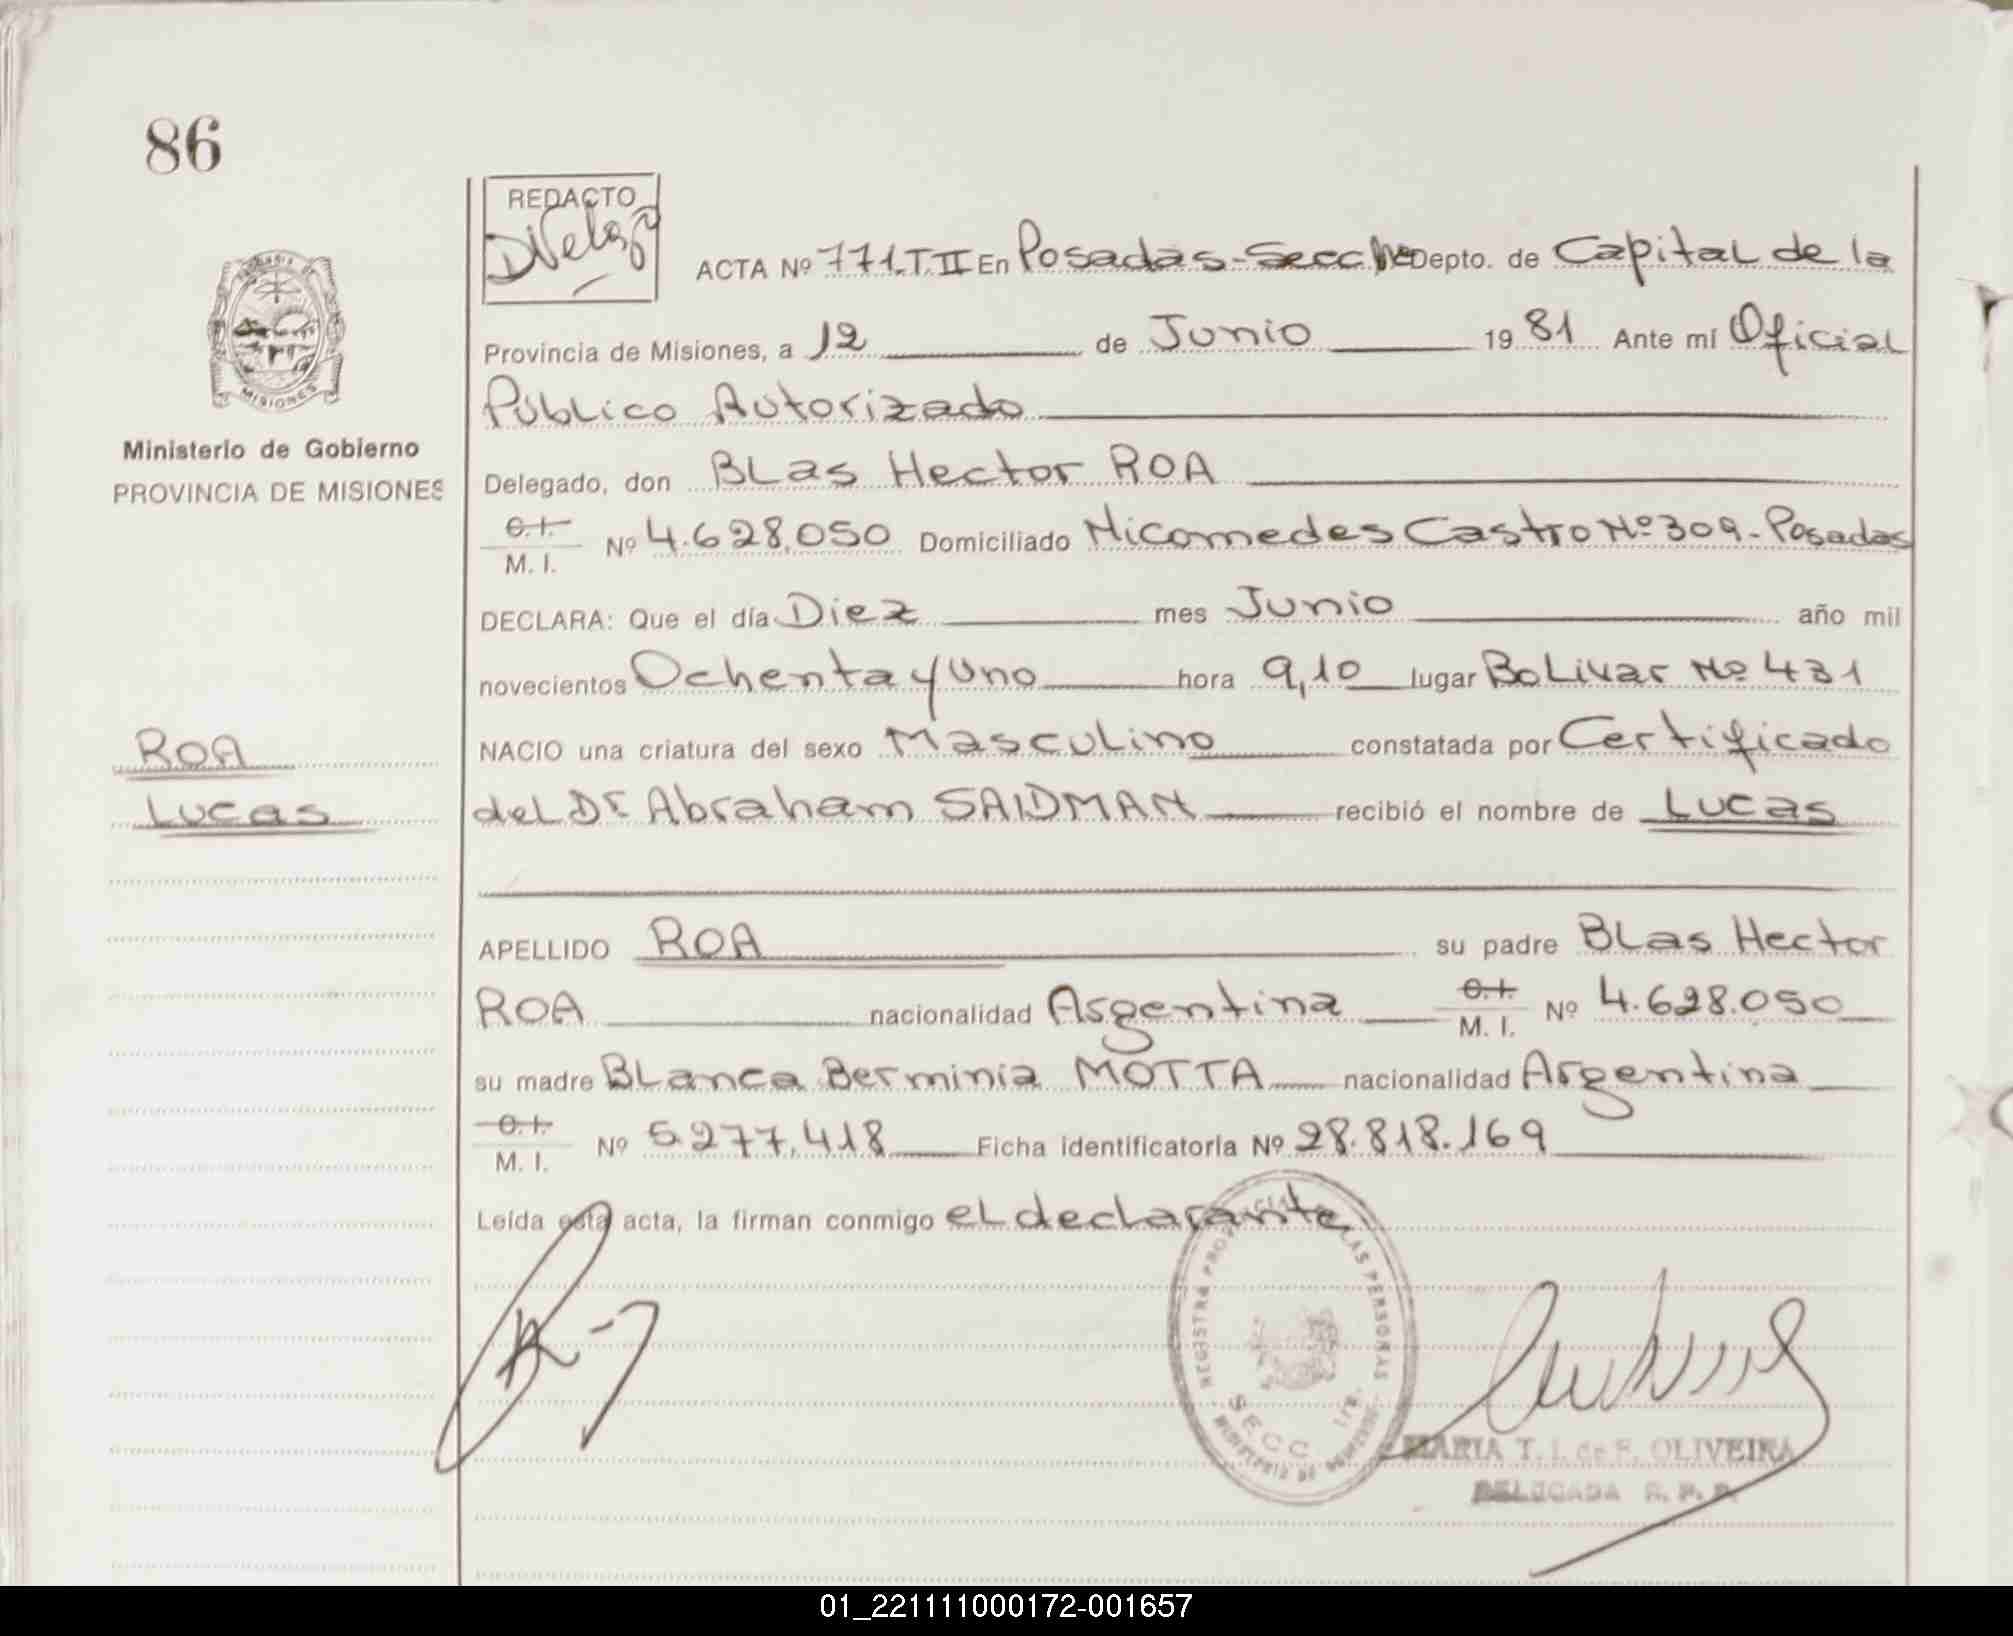 86
REDACTO
ACTA Nº 771.T.II En Posadas-Secc 1ra Depto. de Capital de la
MISIONES
Provincia de Misiones, a 12 de Junio 1981 Ante mí Oficial
Público Autorizado
Ministerio de Gobierno
PROVINCIA DE MISIONES
Delegado, don BLas Hector ROA
C.I.
M. I. Nº 4.628.050 Domiciliado Nicomedes Castro Nº 309-Posadas
DECLARA: Que el día Diez mes Junio año mil
novecientos Ochenta y Uno hora 9,10 lugar BoLivar Nº 431
ROA
NACIO una criatura del sexo MascuLino constatada por Certificado
Lucas
deL Dr Abraham SAIDMAN recibió el nombre de Lucas
APELLIDO ROA su padre BLas Hector
ROA nacionalidad Argentina C.I. M. I. Nº 4.628.050
su madre BLanca Berminia MOTTA nacionalidad Argentina
C.I.
M. I. Nº 5.277.418 Ficha identificatoria Nº 28.818.169
Leída esta acta, la firman conmigo eL declarante
REGISTRO PROVINCIAL DE LAS PERSONAS
SECC. 1ra.
MINISTERIO DE GOBIERNO
MARIA T. I. de F. OLIVEIRA
DELEGADA R. P. P.
01_221111000172-001657